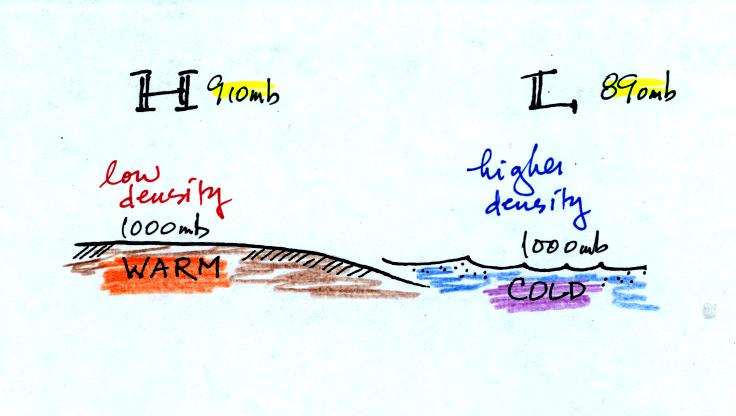 H 910mb
L 890mb
low
density
higher
density
1000mb
1000mb
WARM
COLD